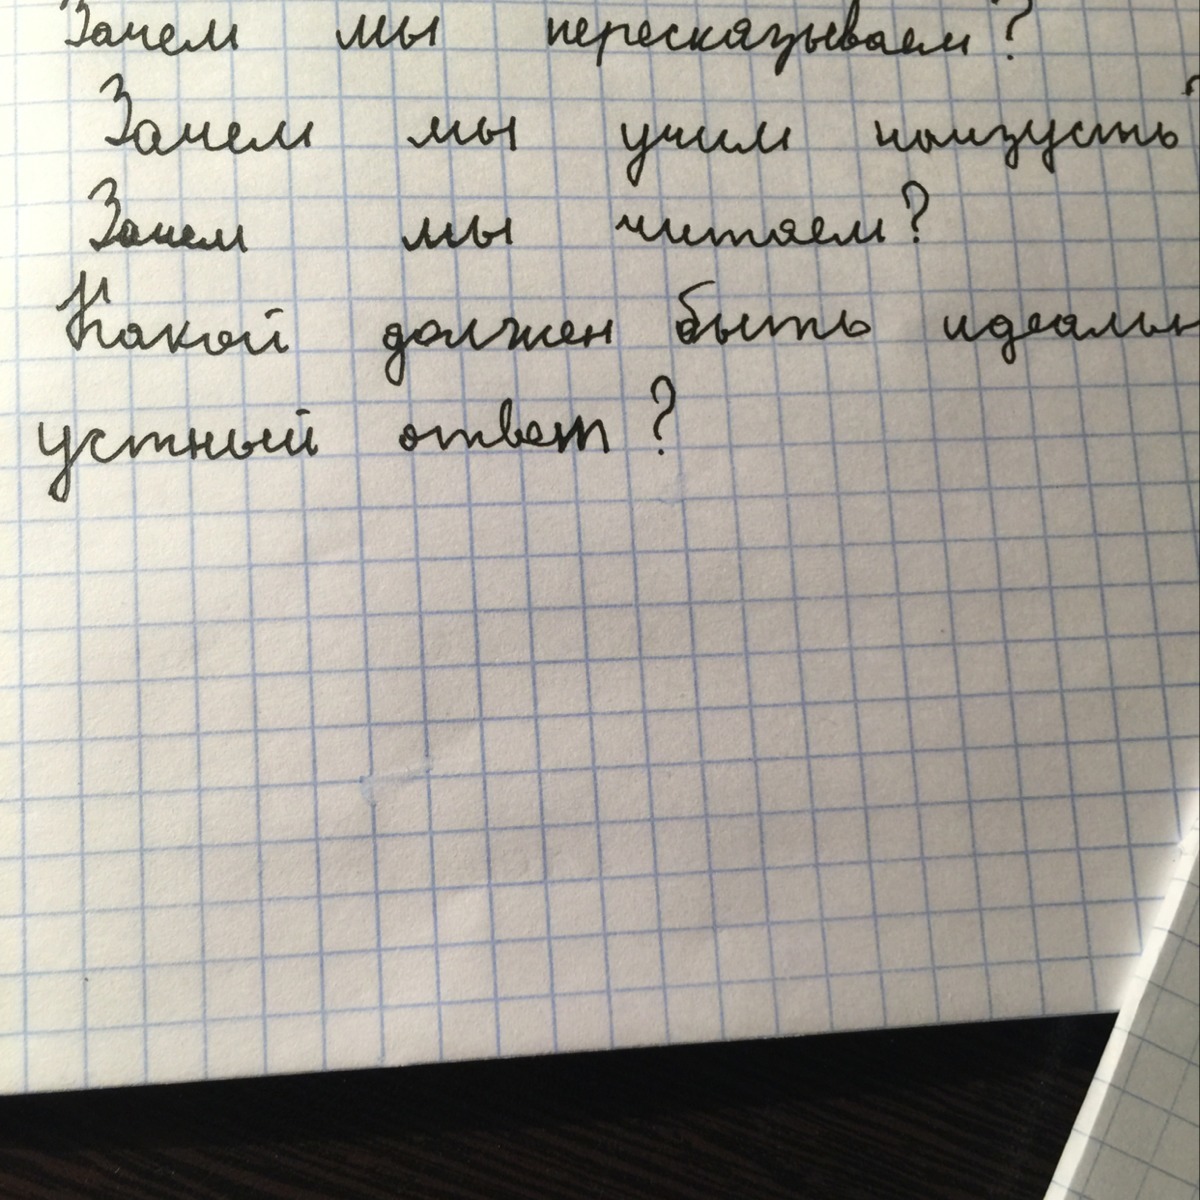 Зачем мы пересказываем?
Зачем мы учим наизусть?
Зачем мы читаем?
Какой должен быть идеальн
устный ответ?